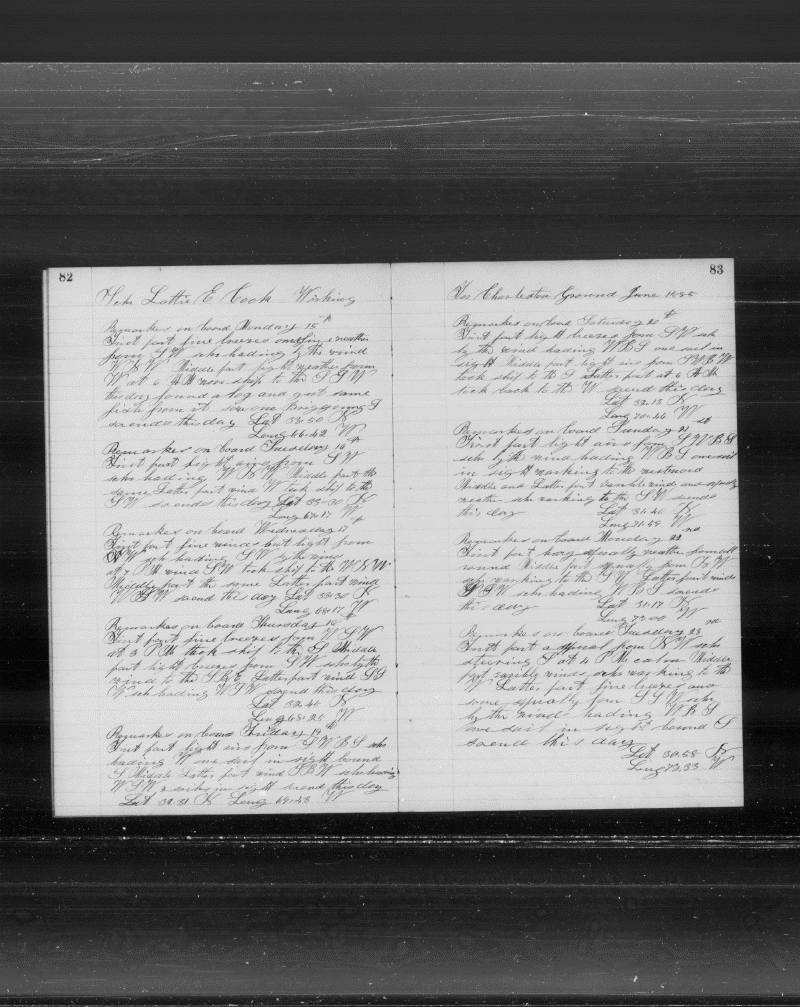 82
Schr Lottie E Cook Working
Remarkes on board Monday 15th
First part fine breezes and fine weather
from SW schr hading by the wind
Middle part light weather from
W at 6 AM wore ship to the SSW
this day found a log and got some
fish from it saw one Brig going S
so ends this day Lat 33-50 N
Long 66-42 W
Remarkes on board Tuesday 16th
First part light airs from SW
schr hading WBN Middle part the
same Latter part wind W took ship to the
SW so ends this day Lat 33-30 N
Long 67-17 W
Remarkes on board Wednesday 17th
First part fine winds but light from
W schr hading SW by the wind
at 7 PM wind SW took ship to the WNW
Middle part the same Latter part wind
WSW so end this day Lat 33-30 N
Long 68-17 W
Remarkes on board Thursday 18th
First part fine breezes from WSW
at 3 PM took ship to the S Middle
part light breezes from SW schr by the
wind to the SBE Latter part wind SS
W schr hading WSW so end this day
Lat 32-45 N
Long 68-25 W
Remarkes on board Friday 19th
First part light airs from SWBS schr
hading W one sail in sight bound
S Middle Latter part wind SBW schr having
WSW in sight so end this day
Lat 32-31 N Long 69-43 W
83
For Charleston Ground June 1885
Remarkes on board Saturday 20th
First part light breezes from SW schr
by the wind hading WBS one sail in
sight Middle part light airs from SWBW
took ship to the S Latter part at 6 AM
tick back to the W so end this day
Lat 32-13 N
Long 70-46 W
Remarkes on board Sunday 21st
First part light airs from SWBS
schr by the wind hading WBS one sail
in sight working to the westward
Middle and Latter part varible winds and squally
weather schr working to the SW so ends
this day Lat 31-40 N
Long 71-59 W
Remarkes on board Monday 22nd
First part hary squally weather from all
round Middle part squaly from NW
schr working to the SW Latter part winds
SW schr hading WBS so ends
this day Lat 31-17 N
Long 73-00 W
Remarkes on board Tuesday 23rd
First part a squal from NW schr
steering S at 4 PM calm Middle
part varibly winds schr working to the
W Latter part fine breezes and
some squally from SSW schr
by the wind hading WBS
one sail in sight bound S
so end this day
Lat 30-58 N
Long 73,33 W